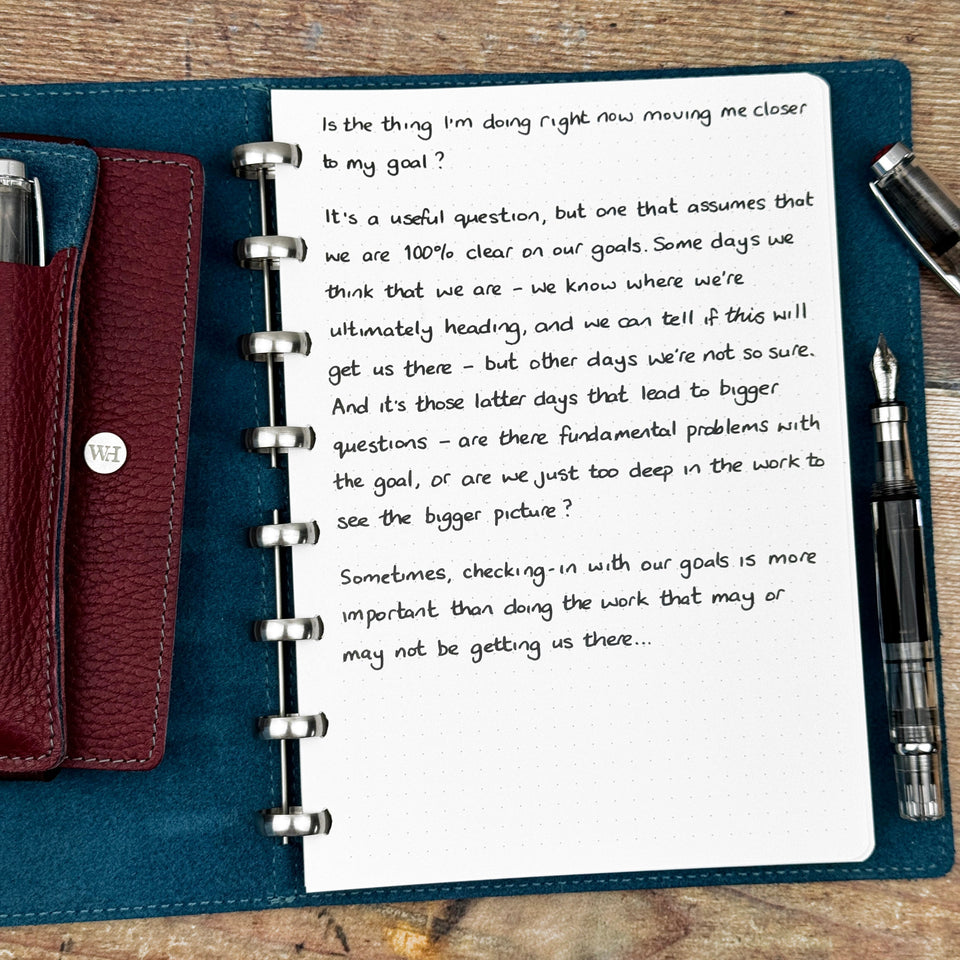 Is the thing I'm doing right now moving me closer
to my goal?
It's a useful question, but one that assumes that
we are 100% clear on our goals. Some days we
think that we are – we know where we're
ultimately heading, and we can tell if this will
get us there – but other days we're not so sure.
And it's those latter days that lead to bigger
questions – are there fundamental problems with
the goal, or are we just too deep in the work to
see the bigger picture?
Sometimes, checking-in with our goals is more
important than doing the work that may or
may not be getting us there...
WH